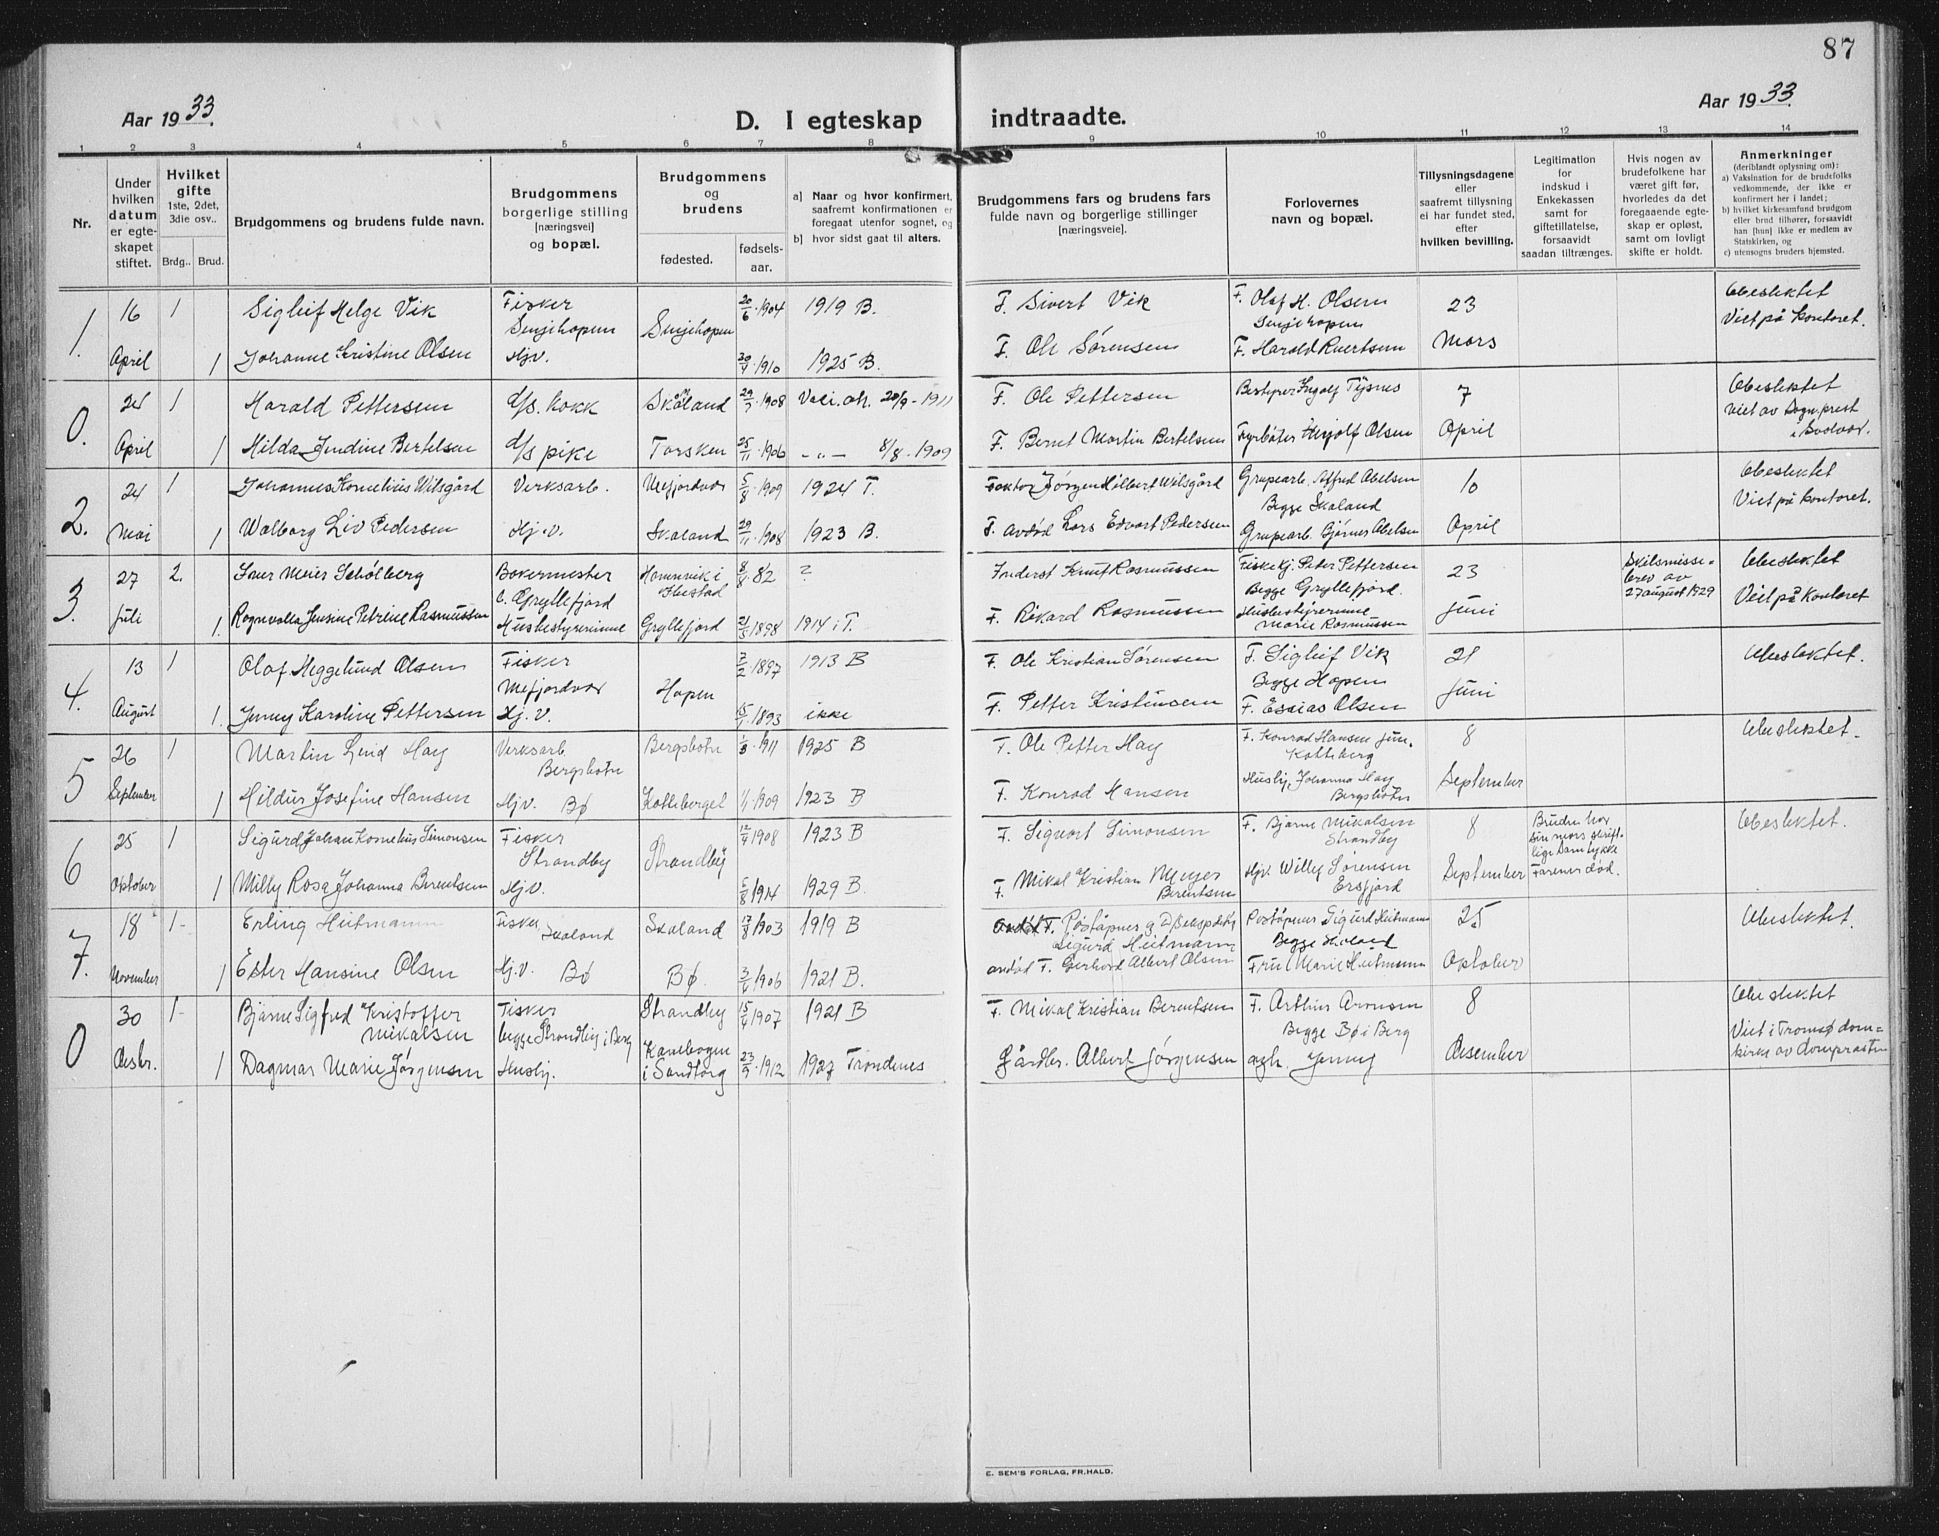 87
Aar 1933.
D. I egteskap indtraadte.
Aar 1933.
1 2 3 4 5 6 7 8 9 10 11 12 13 14
Nr.
Under hvilken datum er egteskapet stiftet.
Hvilket gifte 1ste, 2det, 3die osv..
Brdg.. Brud.
Brudgommens og brudens fulde navn.
Brudgommens borgerlige stilling [næringsvei] og bopæl.
Brudgommens og brudens
fødested.
fødsels-aar.
a) Naar og hvor konfirmert, saafremt konfirmationen er foregaat utenfor sognet, og
b) hvor sidst gaat til alters.
Brudgommens fars og brudens fars fulde navn og borgerlige stillinger [næringsveie].
Forlovernes navn og bopæl.
Tillysningsdagene eller saafremt tillysning ei har fundet sted, efter hvilken bevilling.
Legitimation for indskud i Enkekassen samt for giftetillatelse, forsaavidt saadan tiltrænges.
Hvis nogen av brudefolkene har været gift før, hvorledes da det foregaaende egteskap er opløst, samt om lovligt skifte er holdt.
Anmerkninger
(deriblandt oplysning om):
a) Vaksination for de brudefolks vedkommende, der ikke er konfirmert her i landet;
b) hvilket kirkesamfund brudgom eller brud tilhører, forsaavidt han [hun] ikke er medlem av Statskirken, og
c) utensogns bruders hjemsted.
1. 16 1 Sigleif Helge Vik Fisker Senjehopen Senjehopen 20/6 1904 1919 B. F. Sivert Vik F. Olaf H. Olsen Senjehopen 23 Ubeslektet
April 1 Johanne Kristine Olsen Hjv. 1910 1925 B. F. Ole Sørensen F. Harald Evertsen Mars Viet på kontoret.
0. 24 1 Harald Pettersen d/s. kokk Skaland 1908 Vaci. att. 20/9 - 1911 F. Ole Pettersen Bestyrer Ingolf Tysnes 7 Ubeslektet
April 1 Hilda Jendine Bertelsen d/s pike Torsken 25/11 1906 - " - 8/8 - 1909 F. Bernt Martin Bertelsen Fyrbøter Herjolf Olsen April Viet av Sogn.prest i Svolvær.
2. 24 1 Johannes Kornelius Wilsgård Verksarb. Mefjordvær 5/8 1909 1924 T. Faktor Jørgen Hilbert Wilsgård Grupearb. Alfred Abelsen Begge Skaland 10 Ubeslektet
Mai 1 Walborg Liv Pedersen Hj.v. Skaland 29/11 1908 1923 B. F. avdød Lars Edvart Pedersen Grupearb. Bjørnar Abelsen April Viet på kontoret.
3. 27 2. Meier Schølberg Bakermester b. Gryllefjord Hamnvik i Ibestad 8/8 82 ? Inderst Knut Rasmussen Fiskekj. Peter Pettersen Begge Gryllefjord. 23 Skilsmisse-brev av 27 august 1929 Ubeslektet
Juli 1. Ragnvalla Jensine Petrine Rasmussen Husbestyrerinne Gryllefjord 21/5 1898 1914 i T. F. Rikard Rasmussen Husbestyrerinne Marie Rasmussen Juni Viet på kontoret
4. 13 1 Olaf Heggelund Olsen Fisker Mefjordvær Hopen 7/2 1897 1913 B F. Ole Kristian Sørensen F. Sigleif Vik Begge Hopen 21 Ubeslektet.
August 1. Jenny Karoline Pettersen Hj.v. 1893 ikke F. Petter Kristensen F. Esaias Olsen Juni
5 26 1 Martin Lind Hay Verksarb Bergsbotn Bergsbotn 1/3 1911 1925 B F. Ole Petter Hay F. Konrad Hansen jun. Kaltberg 8 Ubeslektet.
September 1 Hildur Josefine Hansen Hjv. Bø 1/11 1909 1923 B F. Konrad Hansen Husbj. Johanna Hay Bergsbotn September
6 25 1 Sigurd Johan Kornelius Simonsen Fisker Strandby Strandby 12/4 1908 1923 B F. Sigvart Simonsen F. Bjarne Mikalsen Strandby 8 Bruden har sin mors skriftlige samtykke Faren er død. Ubeslektet.
Oktober 1 Milly Rosa Johanna Berentsen Hjv. 5/8 1914 1929 B. F. Mikal Kristian Meyer Berentsen Hjv. Willy Sørensen Ersfjord September
7. 18 1 Erling Heitmann Fisker Skaland Skaland 17/8 1903 1919 B avdød F. Poståpner og Sigurd Heitmann Poståpner Sigurd Heitmann Begge Skaland 25 Ubeslektet.
November 1 Ester Hansine Olsen Hj.v. Bø Bø. 1906 1921 B. avdød F. Gerhard Albert Olsen Fru Marie Heitmann Oktober
0 30 1 Bjarne Sigfred Kristoffer Mikalsen Fisker begge Strandby i Berg Strandby 15/4 1907 1921 B F. Mikal Kristian Berentsen F. Arthur Aronsen Begge Bø i Berg 8 Ubeslektet
Desbr. 1 Dagmar Marie Jørgensen Husbj. Kasebogen i Sandtorg 23/9 1912 1927 Trondenes Gårdbr. Albert Jørgensen agh. Jenny Desember Viet i Tromsø domkirke av domprosten
E. SEM'S FORLAG, FR.HALD.